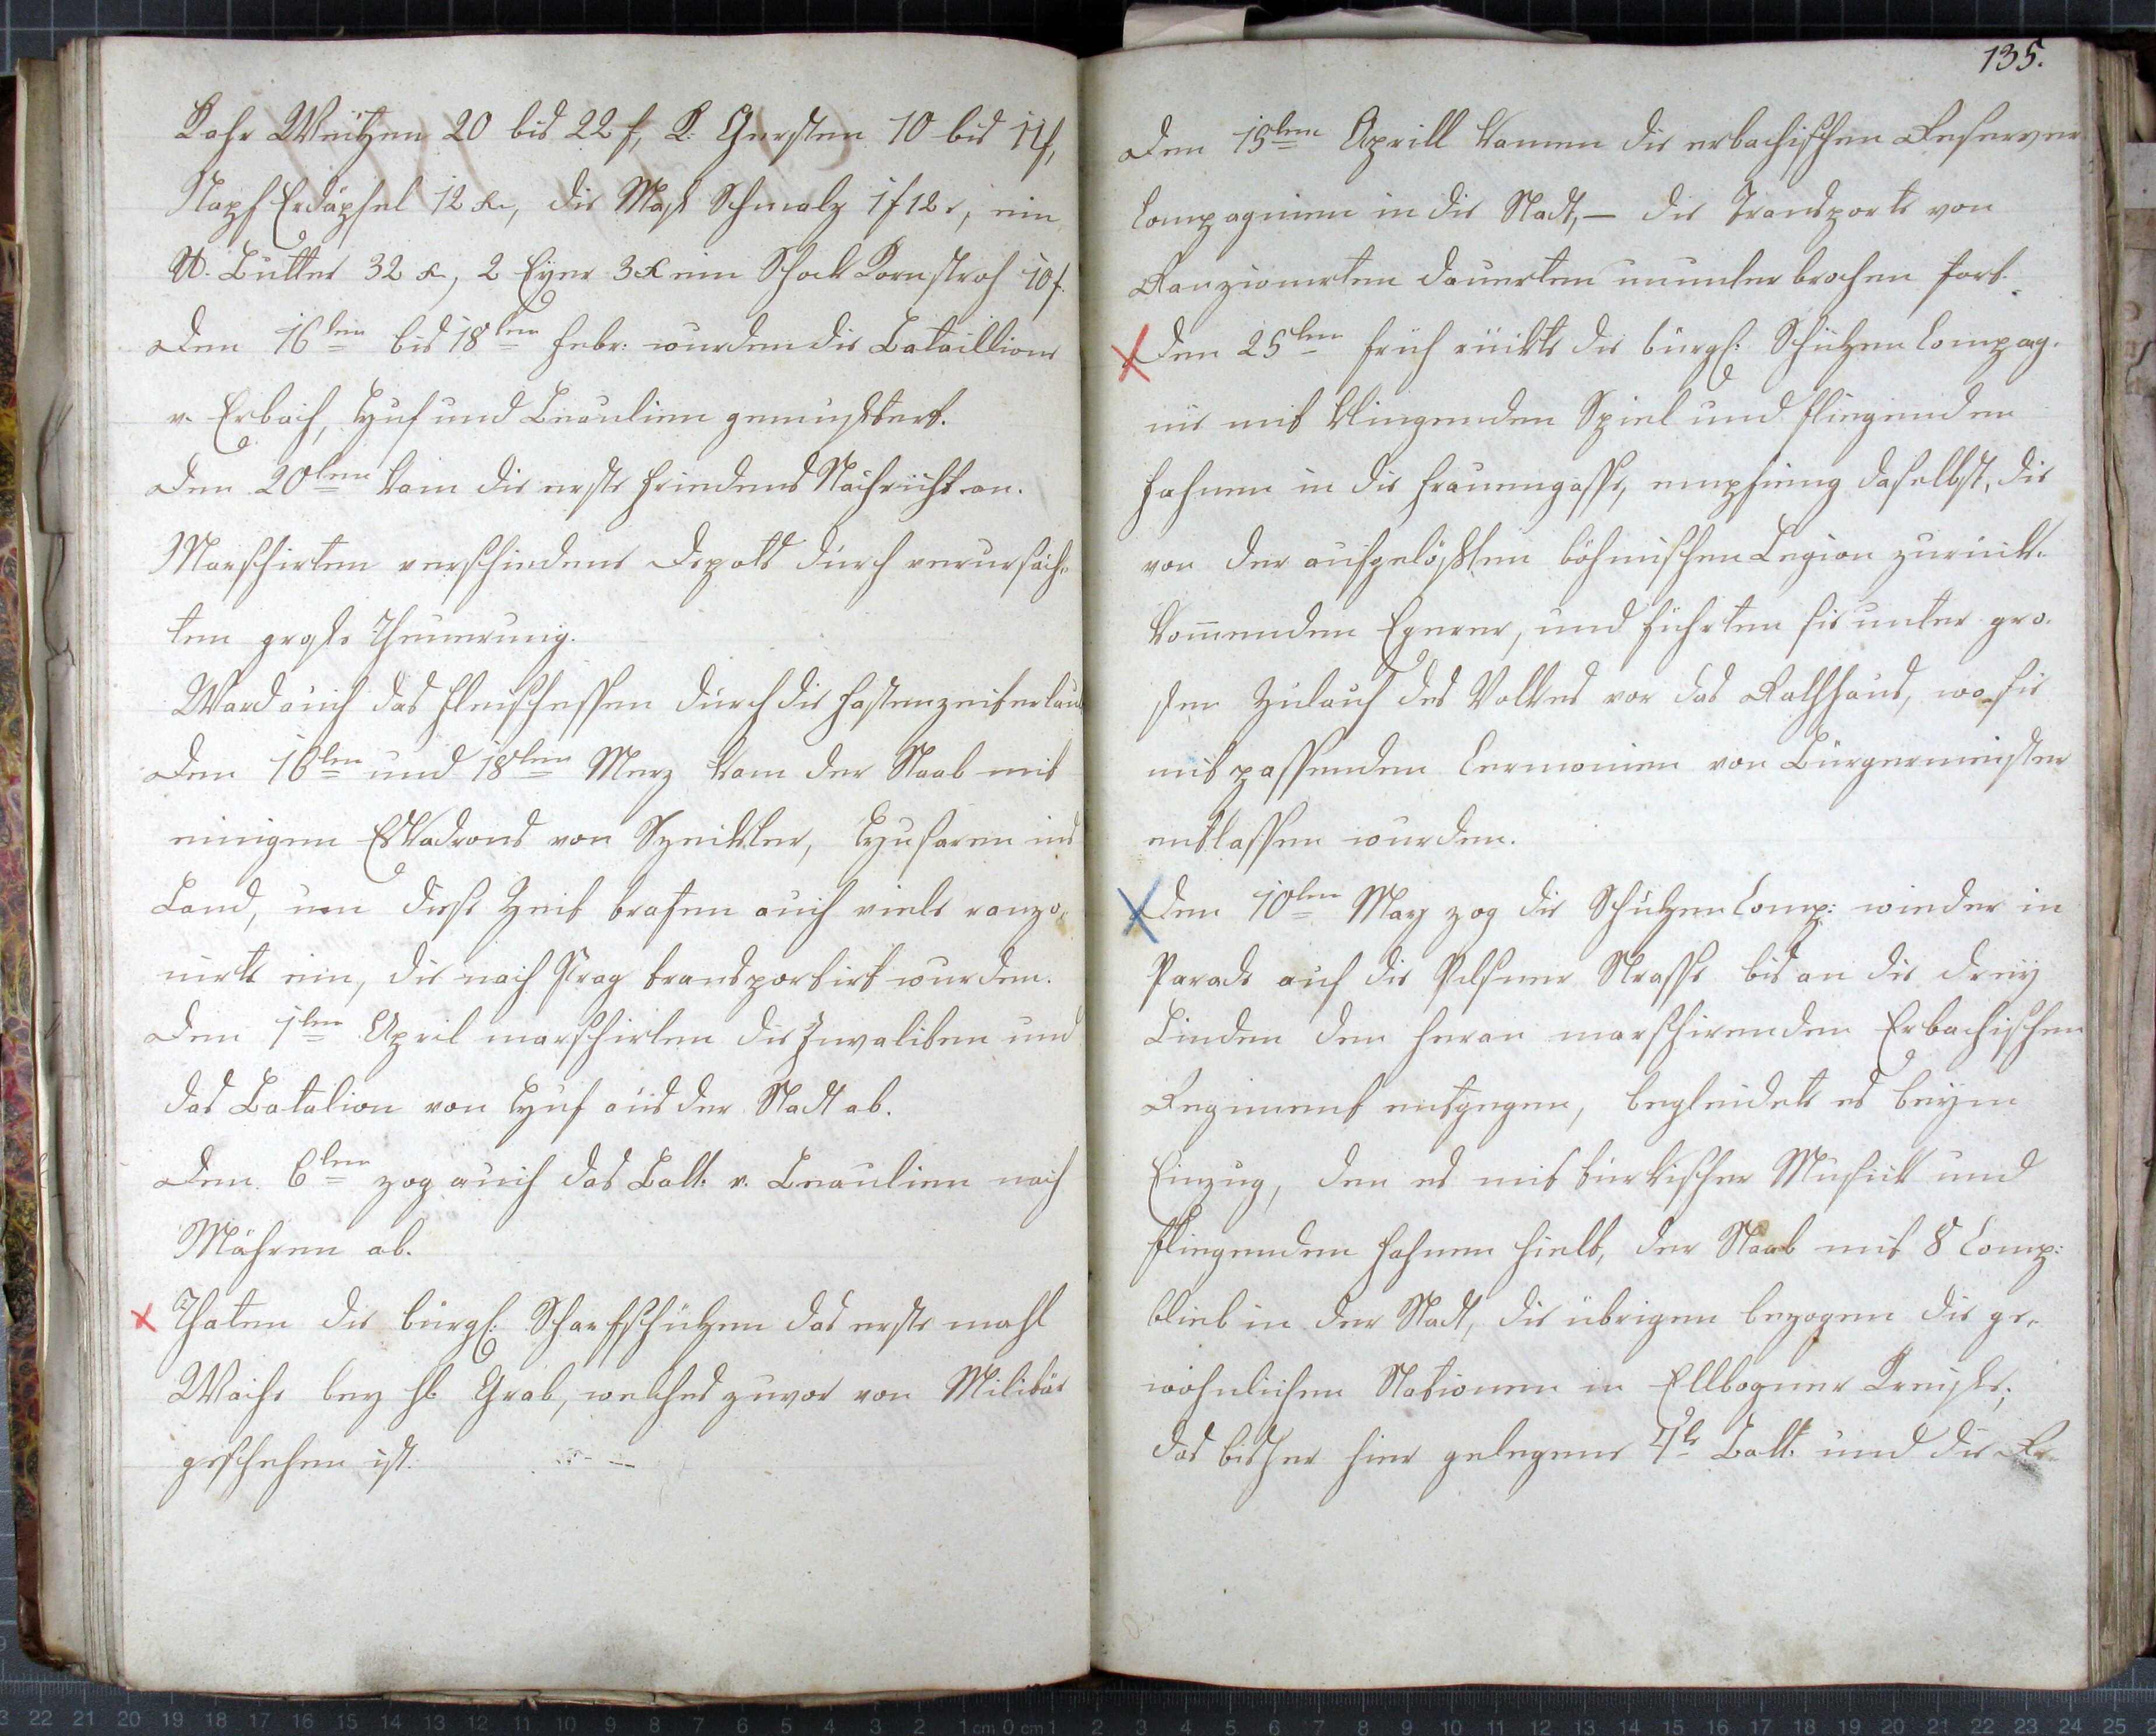 Kahr Weitzen 20 bis 22 f, K: Gersten 10 bis 11 f,
Napf Erdäpfel 12 x, die Maß Schmalz 1 f 12 x, ein
℔. Butter 32 x, 2 Eyer 3 x ein Schock Kornstroh 10 f.
Den 16ten bis 18ten Febr: wurden die Bataillione
v. Erbach, Huf und Beaulieu gemustert.
Den 20ten kam die erste Friedens Nachricht an.
Marschirten verschiedene Depots durch verursach-
ten große Theuerung.
Ward auch das Fleischessen durch die Fastenzeit erlaubt
Den 16ten und 18ten Merz kam der Staab mit
einigen Eskadrons von Szeickler, Husaren ins
Land, um diese Zeit trafen auch viele ranzo-
nirte ein, die nach Prag transportirt wurden.
Den 1ten April marschirten die Invaliden und
das Batalion von Huf aus der Stadt ab.
Den 6ten zog auch das Batt. v. Beaulieu nach
Mähren ab.
Thaten die bürgl: Scharfschützen das erste mahl
Wache bey hl Grab, welches zuvor von Militär
geschehen ist.
135.
Den 15ten Aprill kamen die erbachischen Reserve
Compagnien in die Stadt, — die Transporte von
Ranzionirten dauerten ununterbrochen fort.
Den 25ten früh rückte die bürgl: Schützen Compag-
nie mit klingenden Spiel und fliegenden
Fahnen in die Frauengasse, empfieng daselbst, die
von der aufgelößten böhmischen Legion zurück-
kommenden Egerer, und führten sie unter gro-
sen Zulauf des Volkes vor das Rathhaus, wo sie
mit passenden Cermonien von Bürgermeister
entlassen wurden.
Den 10ten May zog die Schützen Comp: wieder in
Parade auf die Pilsner Strasse bis an die drey
Linden dem heran marschirenden Erbachischen
Regiment entgegen, begleidete es beym
Einzug, den es mit türkischer Musick und
fliegenden Fahnen hielt, der Staab mit 8 Comp:
blieb in der Stadt, die übrigen bezogen die ge-
wöhnlichen Stationen in Ellbogner Kreiße;
das bisher hier gelegene 4te Batt. und die Re-